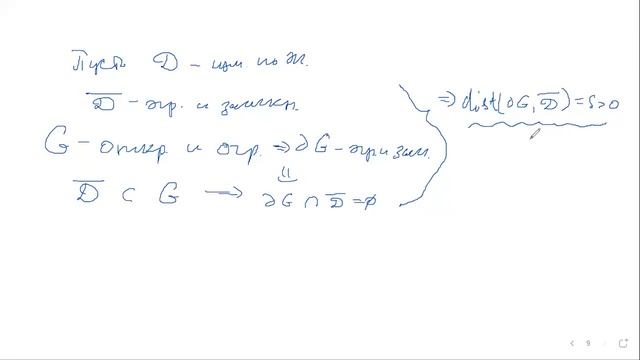 Пусть D – изм по Ж.
D̅ – огр. и замкн.
G – откр и огр. ⇒ ∂G – огр и зам.
D̅ ⊂ G → ∂G ∩ D̅ = ∅
⇒ dist(∂G, D̅) = δ > 0
9